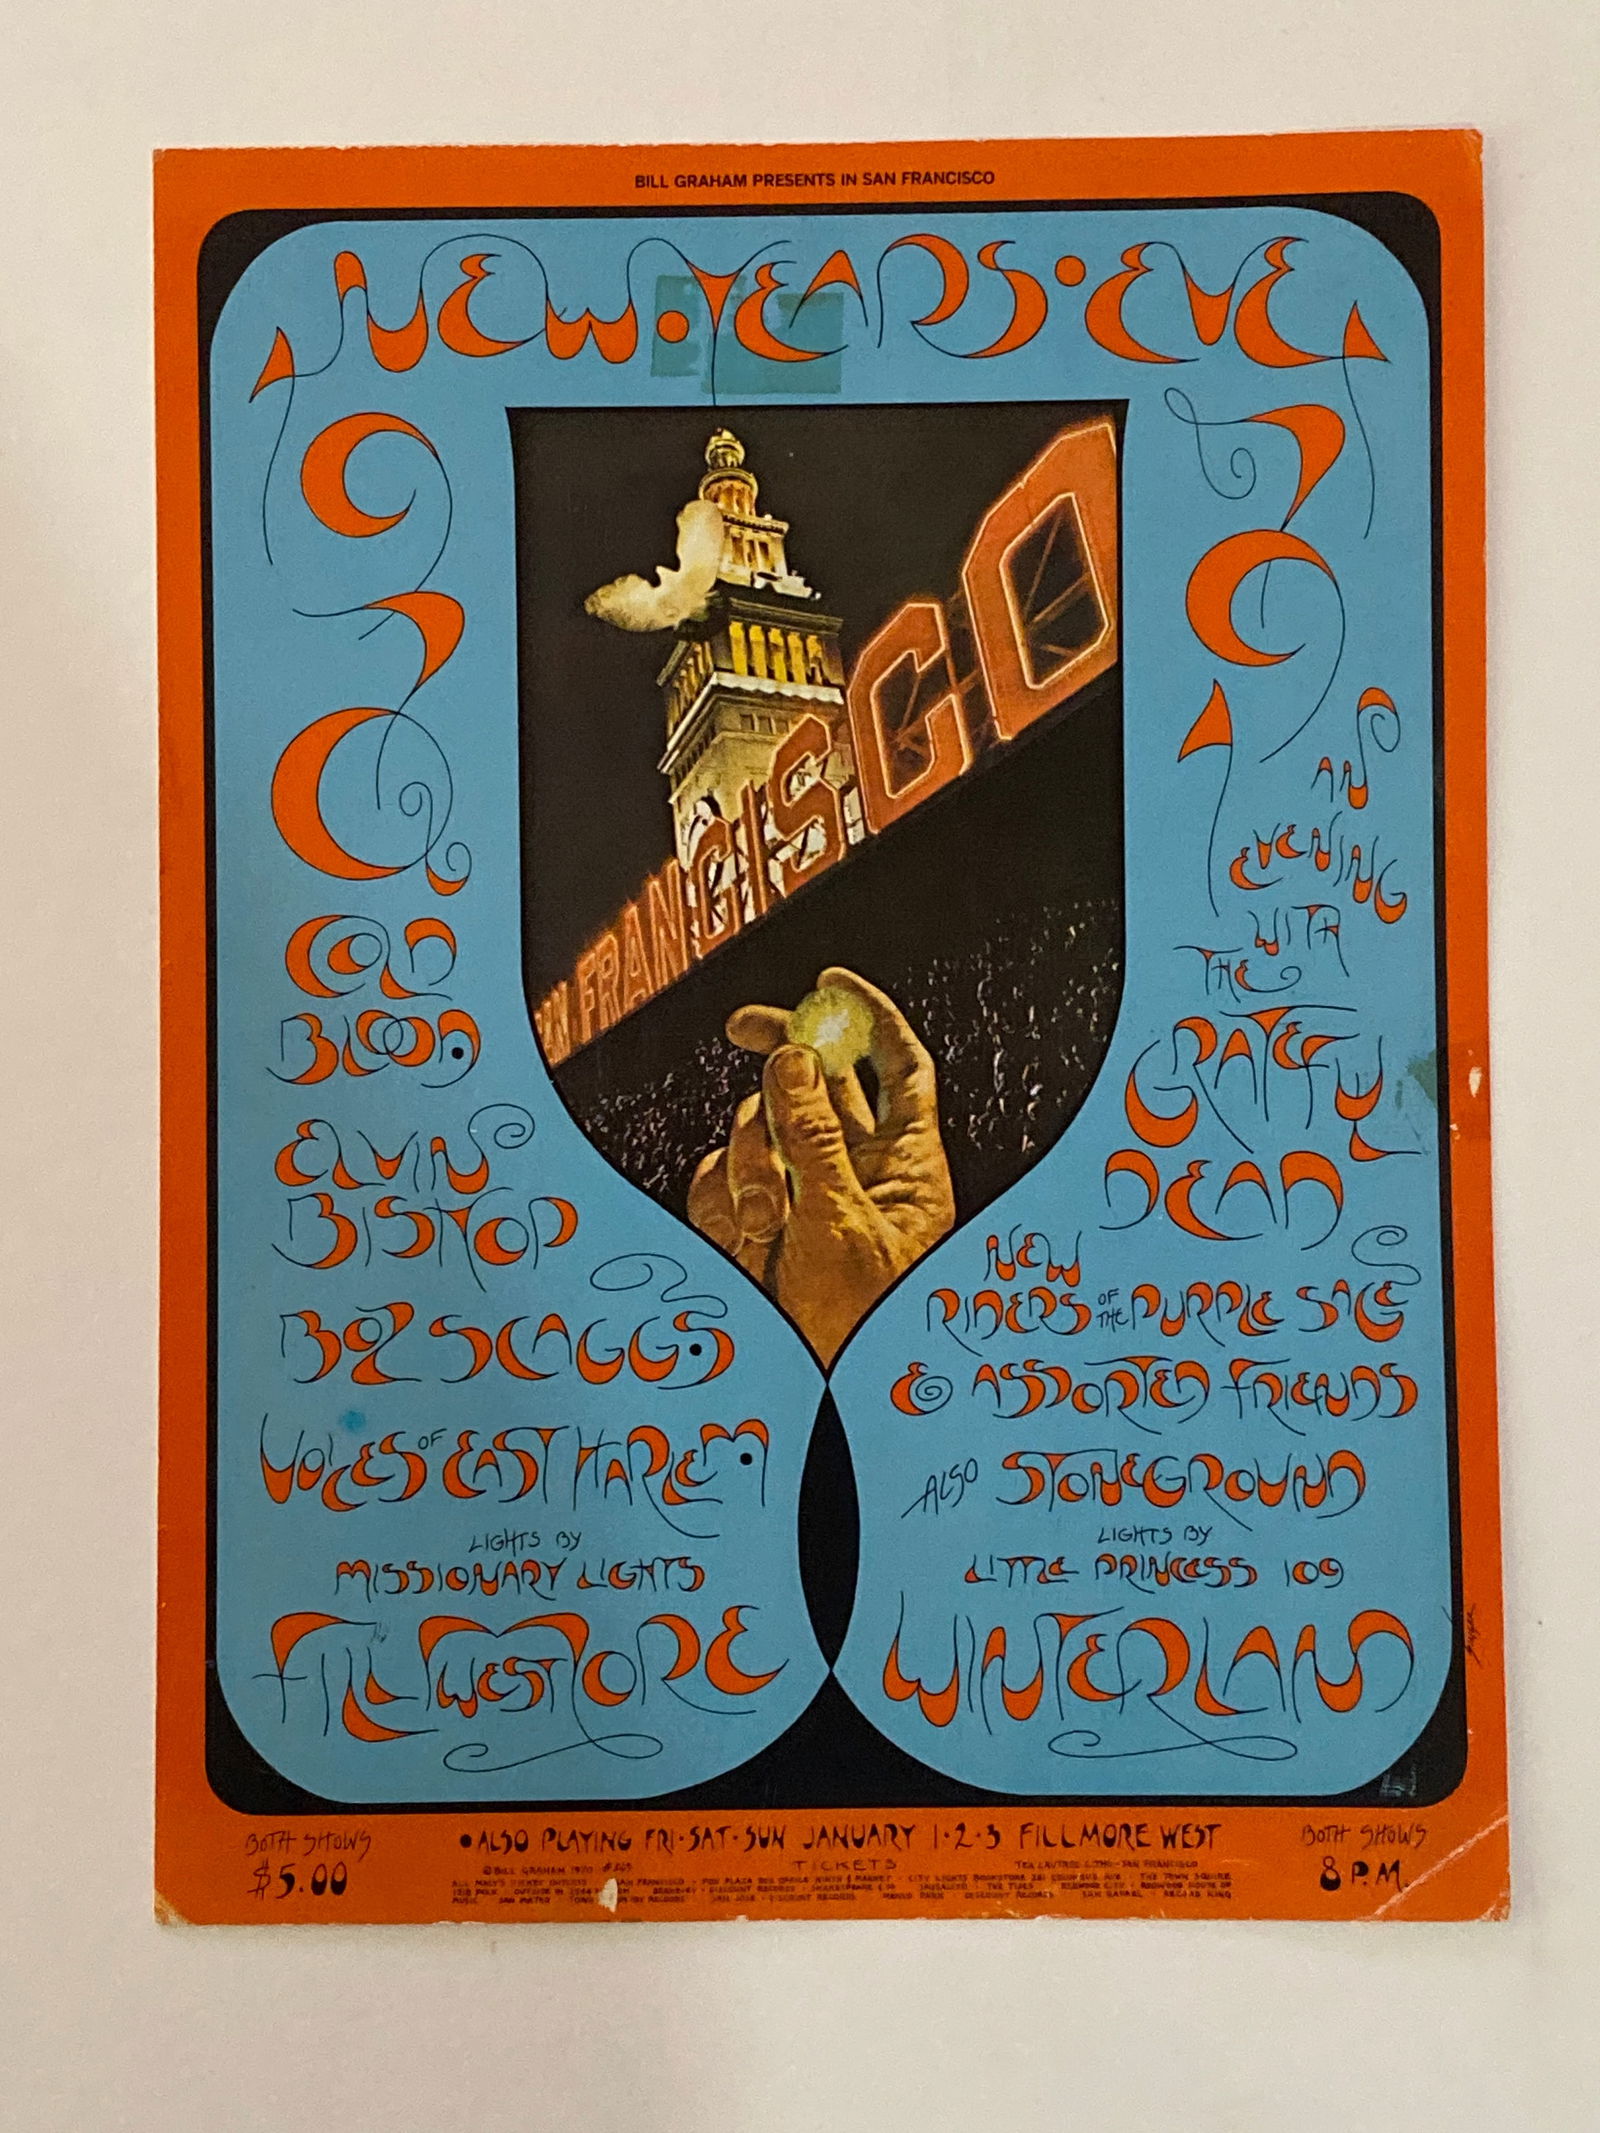 BILL GRAHAM PRESENTS IN SAN FRANCISCO
NEW·YEARS·EVE
1970
COLD
BLOOD.
ELVIN
BISHOP
BOZ SCAGGS.
VOICES OF EAST HARLEM.
LIGHTS BY
MISSIONARY LIGHTS
FILLMORE
WEST
SAN FRANCISCO
1971
AN
EVENING
WITH
THE
GRATEFUL
DEAD
NEW
RIDERS OF THE PURPLE SAGE
& ASSORTED FRIENDS
ALSO STONEGROUND
LIGHTS BY
LITTLE PRINCESS 109
WINTERLAND
BOTH SHOWS
$5.00
•ALSO PLAYING FRI·SAT·SUN JANUARY 1·2·3 FILLMORE WEST
TICKETS
©BILL GRAHAM 1970
TEA LAUTREC LITHO-SAN FRANCISCO
BOTH SHOWS
8 P.M.